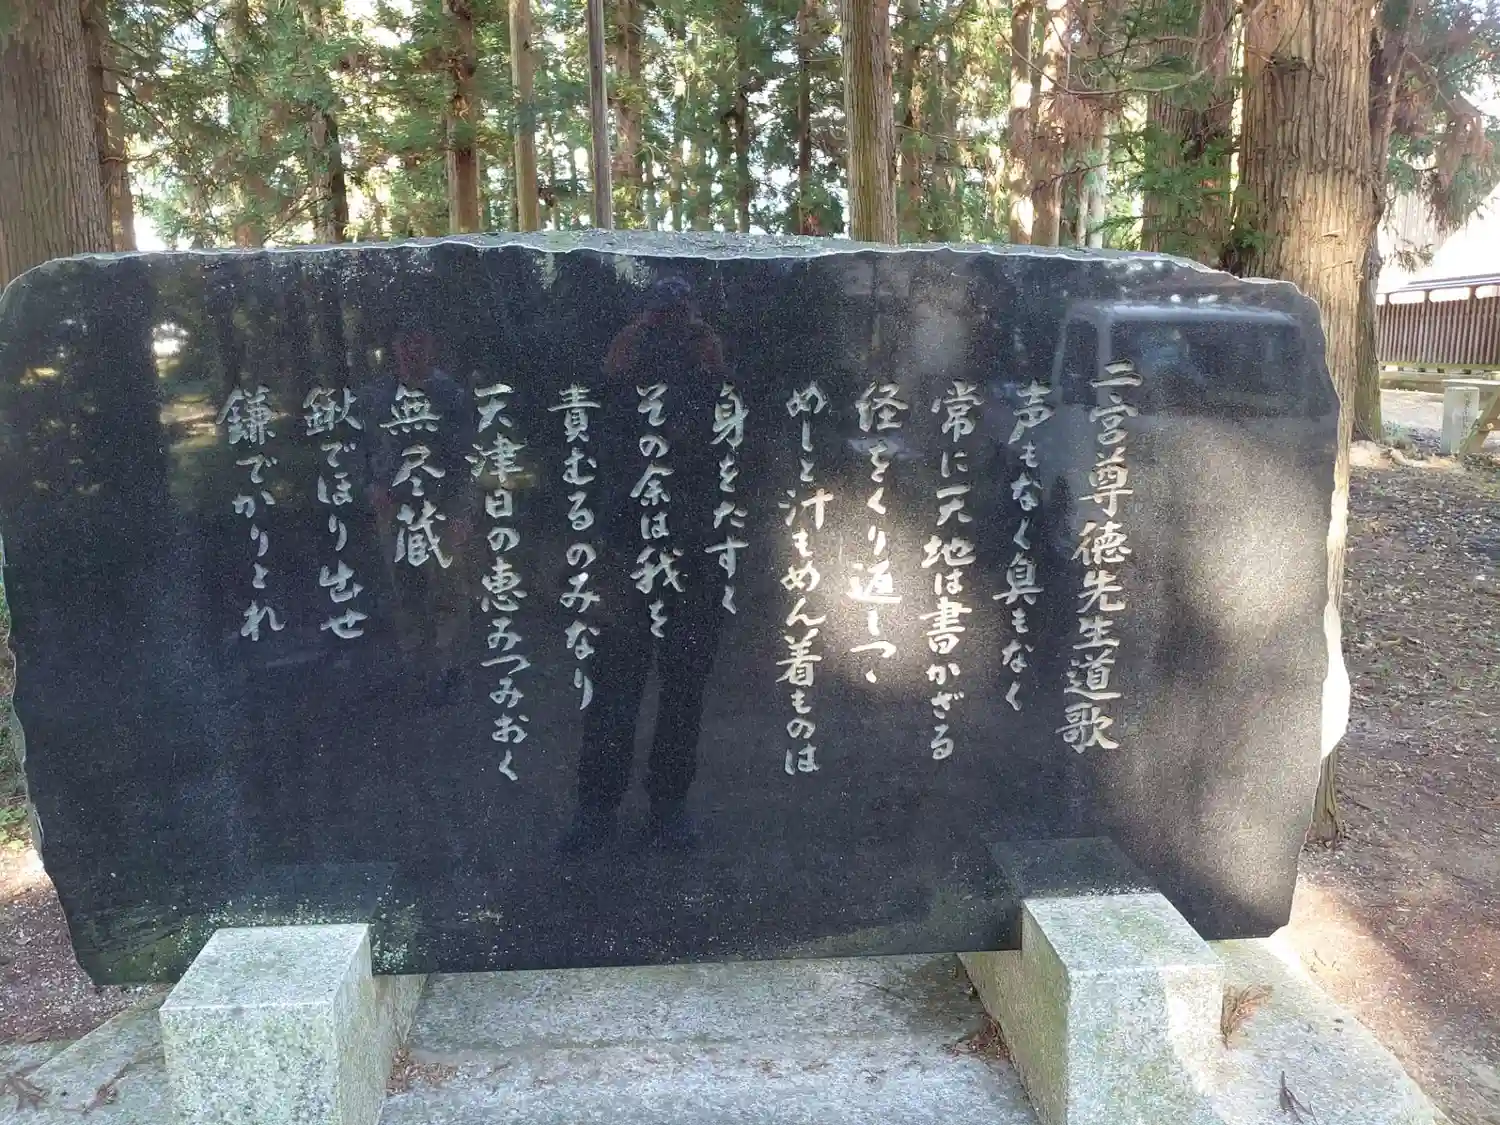 二宮尊徳先生道歌
声もなく臭もなく
常に天地は書かざる
経をくり返しつゝ
めしと汁もめん着ものは
身をたすく
その余は我を
責むるのみなり
天津日の恵みつみおく
無尽蔵
鍬でほり出せ
鎌でかりとれ